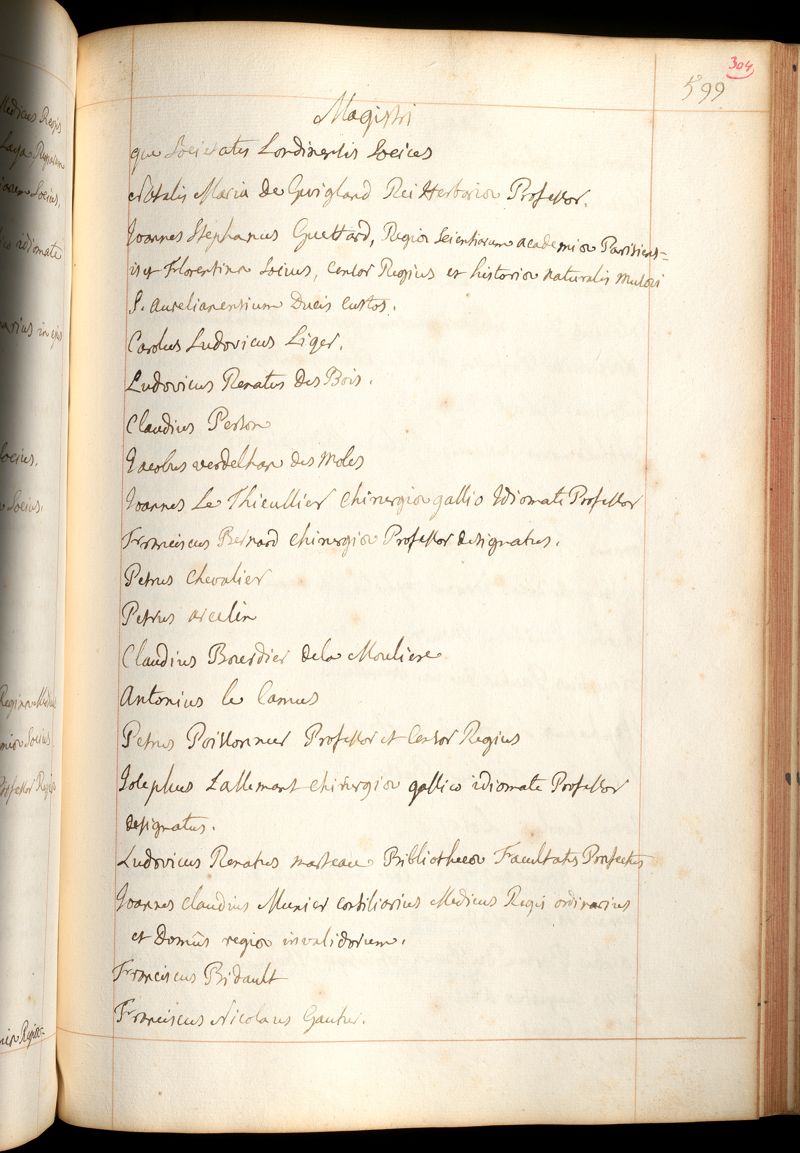 304
599
Magistri
que Societatis Londinensis Socius
Natalis Maria de Gevigland Rei Herbariæ Professor.
Joannes Stephanus Guettard, Regiæ Scientiarum academiæ Parisiens=
is et Florentinæ Socius, censor Regius et historiæ naturalis Musæi
S. aurelianensium Ducis Custos.
Carolus Ludovicus Liger.
Ludovicus Renatus des Bois.
Claudius Person
Jacobus verdelhan des Moles
Joannes Le Thieullier chirurgiæ gallico Idiomate Professor
Franciscus Bernard chirurgiæ Professor designatus.
Petrus chevalier
Petrus arcelin
Claudius Bourdier dela Mouliere
Antonius le Camus
Petrus Poissonnier Professor et Censor Regius
Josephus Lallemant chirurgiæ gallico idiomate Professor
designatus.
Ludovicus Renatus marteau Bibliothecæ Facultatis Præfectus
Joannes claudius Munier consiliarius Medicus Regis ordinarius
et Domûs regiæ invalidorum.
Franciscus Bidault
Franciscus Nicolaus Gautier.
Medicus Regis
Socius.
idiomate
Socius.
Socius.
Socius
Professor Regius